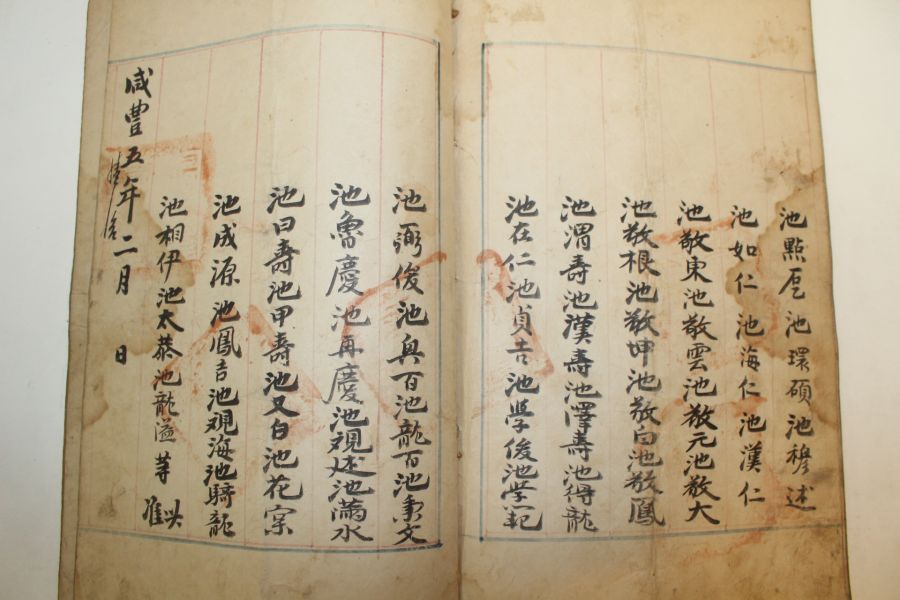 池點厚池環碩池穆述
池如仁池海仁池漢仁
池敬東池敬雲池敬元池敬大
池敬根池敬坤池敬白池敬鳳
池渭壽池漢壽池澤壽池得龍
池在仁池貞吉池學俊池學範
池弼俊池與百池龍百池秉文
池魯慶池再慶池觀述池滿水
池日壽池甲壽池又白池花案
池成源池鳳吉池觀海池騎龍
池相伊池太恭池龍溢等
咸豐五年二月 日